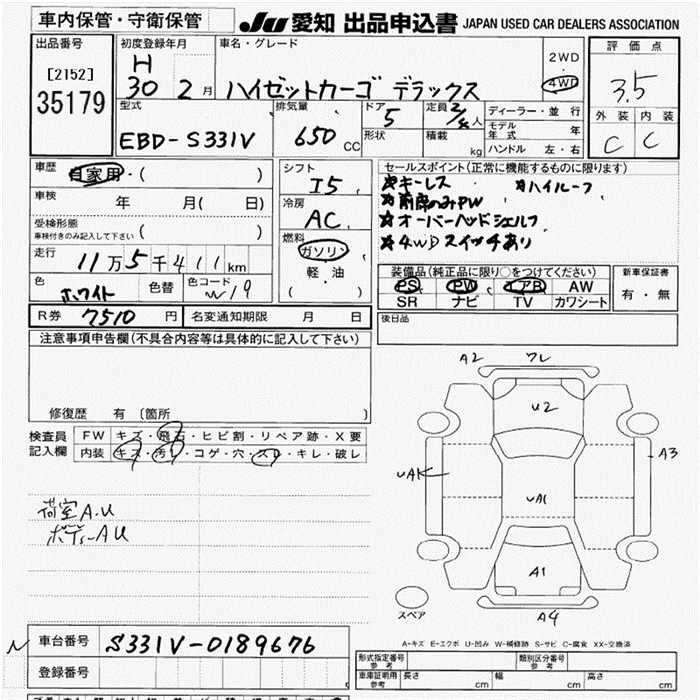 車内保管・守衛保管
JU 愛知 出品申込書 JAPAN USED CAR DEALERS ASSOCIATION
出品番号
[2152]
35179
初度登録年月
H
30 2 月
車名・グレード
ハイゼットカーゴ デラックス
2WD
・
4WD
評価点
3.5
外装 内装
C C
型式
EBD-S331V
排気量
650 CC
ドア
5
形状
定員
2/4人
積載
kg
ディーラー・並行
モデル年式 年
ハンドル 左・右
車歴
自家用・( )
車検
年 月( 日)
受検形態
車検付きのみ記入して下さい ( )
走行
11万5千411km
色
ホワイト
色替
色コード
W19
シフト
I5
冷房
AC
燃料
ガソリン
軽・油
( )
セールスポイント(正常に機能するものに限ります)
☆キーレス ☆ハイルーフ
☆前席のみPW
☆オーバーヘッドシェルフ
☆4WDスイッチあり
装備品(純正品に限り○をつけてください)
PS PW エアB AW
SR ナビ TV カワシート
新車保証書
有・無
R券 7510 円
名変通知期限 月 日
後日品
注意事項申告欄(不具合内容等は具体的に記入して下さい)
修復歴 有 (箇所 )
検査員
記入欄
FW キズ・飛石・ヒビ割・リペア跡・X要
内装 キズ・汚レ・コゲ・穴・スレ・キレ・破レ
荷室A.U
ボディーAU
A2 フレ
U2
A3
UAK
UA1
A1
スペア
A4
A-キズ E-エクボ U-凹み W-補修跡 S-サビ C-腐食 XX-交換済
N 車台番号 S331V-0189676
登録番号
形式指定番号
参考
類別区分番号
参考
車庫証明用
参考
長さ cm 幅 cm 高さ cm